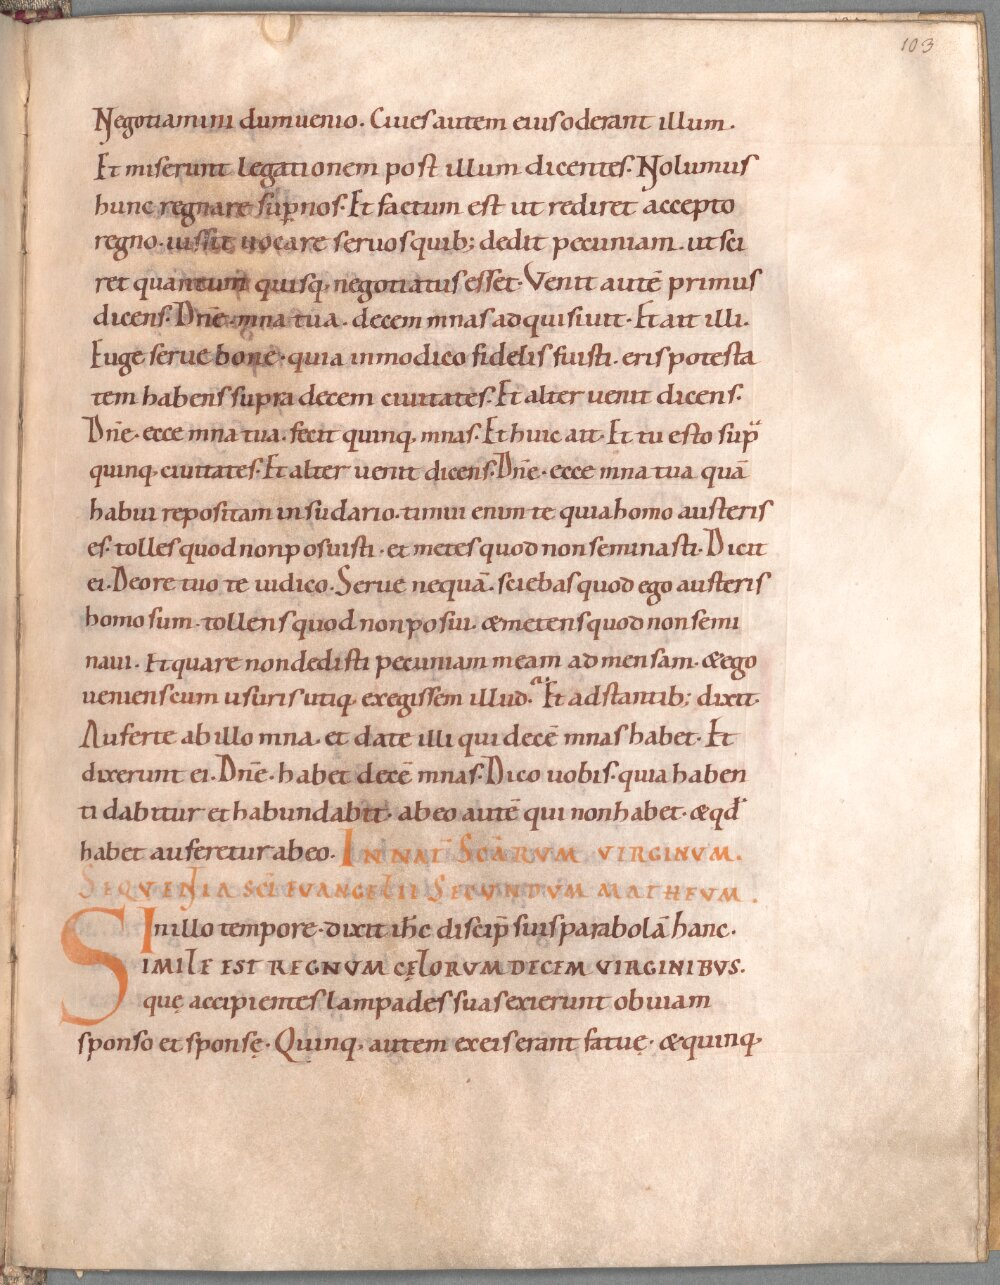 103
Negotiamini dum uenio. Ciues autem eius oderant illum.
Et miserunt legationem post illum dicentes. Nolumus
hunc regnare sup̱ nos. Et factum est ut rediret accepto
regno. iussit uocare seruos quib; dedit pecuniam. ut sci
ret quantum quisq, negotiatus esset. Venit autē primus
dicens. Dn̄e. mna tua. decem mnas adquisiuit. Et ait illi.
Euge serue bone. quia in modico fidelis fuisti. eris potesta
tem habens supra decem ciuitates. Et alter uenit dicens.
Dn̄e. ecce mna tua. fecit quinq, mnas. Et huic ait. Et tu esto sup̄
quinq, ciuitates. Et alter uenit dicens. Dn̄e. ecce mna tua quā
habui repositam in sudario. timui enim te quia homo austeris
es. tolles quod non posuisti. et metes quod non seminasti. Dicit
ei. De ore tuo te iudico. Serue nequā. sciebas quod ego austeris
homo sum. tollens quod non posui. & metens quod non semi
naui. Et quare non dedisti pecuniam meam ad mensam. & ego
ueniens cum usuris utiq, exegissem illud. Et adstantib; dixit.
Auferte ab illo mna. et date illi qui decē mnas habet. Et
dixerunt ei. Dn̄e. habet decē mnas. Dico uobis. quia haben
ti dabitur et habundabit. ab eo autē qui non habet. & qd̄
habet auferetur ab eo. IN NAT̄ SCĀRVM VIRGINVM.
SEQVENTIA SCĪ EVANGELII SECVNDVM MATHEVM.
In illo tempore. dixit ih̄c discip̄ suis parabolā hanc.
SIMILE EST REGNVM CĘLORVM DECEM VIRGINIBVS.
quę accipientes lampades suas exierunt obuiam
sponso et sponsę. Quinq, autem ex eis erant fatuę. & quinq,